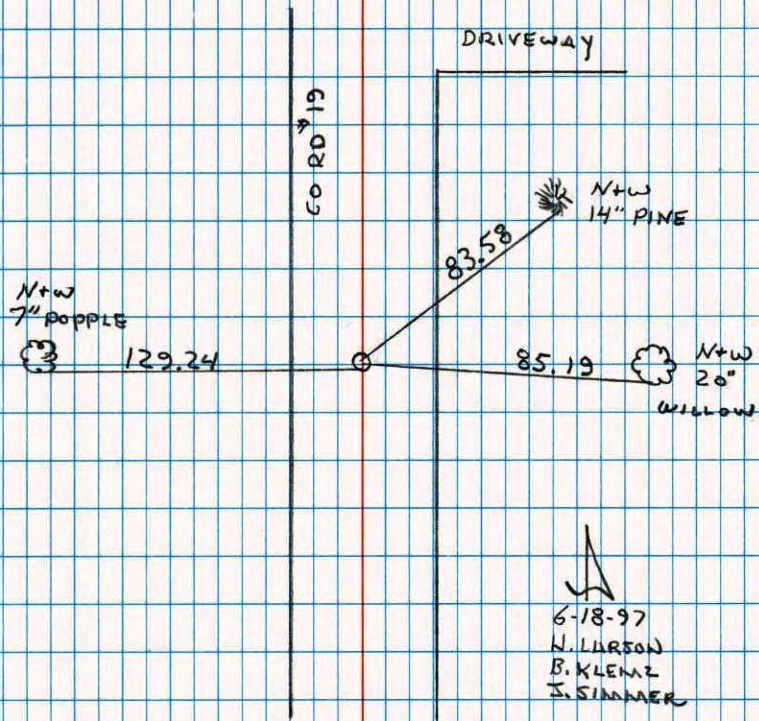 DRIVEWAY
CO RD #19
N+W
14" PINE
83.58
N+W
7" POPPLE
129.24
85.19
N+W
20"
WILLOW
6-18-97
W. LARSON
B. KLEMZ
J. SIMMER